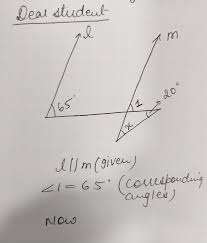 Dear student
l
m
65°
1
20°
x
l || m (given)
∠1 = 65° (corresponding
angles)
Now